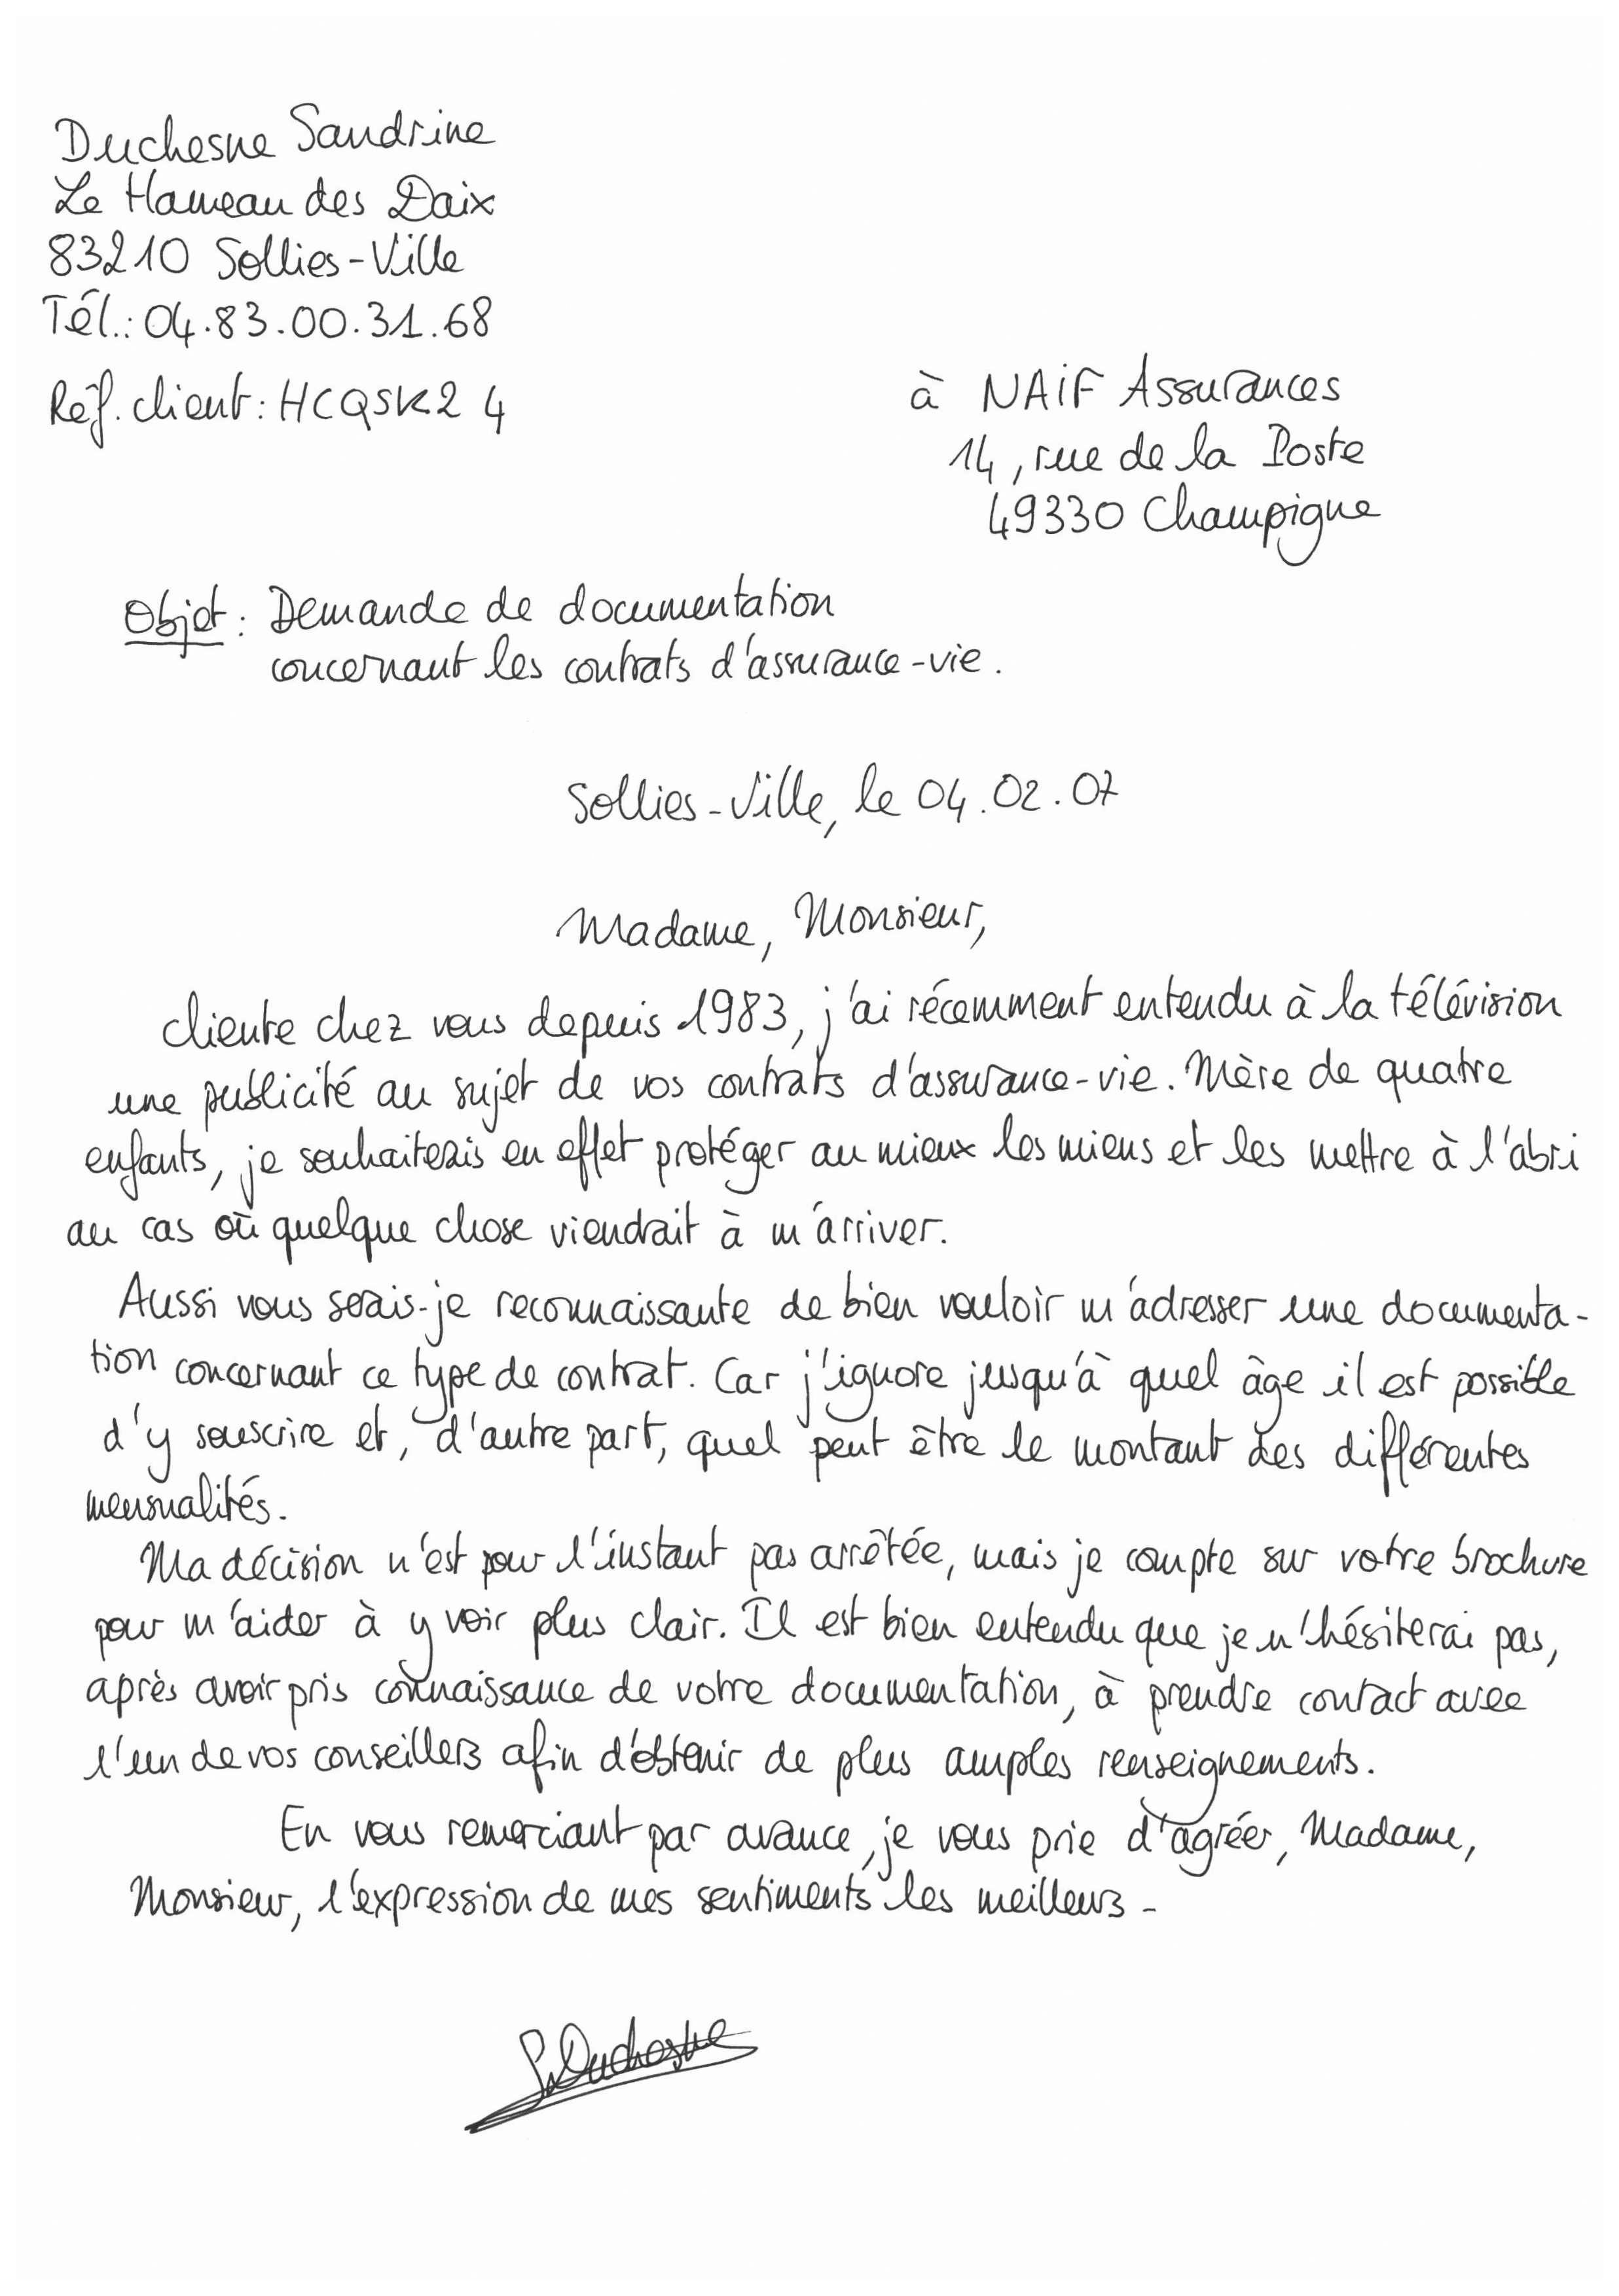 Duchesne Sandrine
Le Hameau des Daix
83210 Sollies-Ville
Tél.: 04.83.00.31.68
Réf. client: HCQSK24
à NAiF Assurances
14, rue de la Poste
49330 Champigne
Objet: Demande de documentation
concernant les contrats d'assurance-vie.
Sollies-Ville, le 04.02.07
Madame, Monsieur,
cliente chez vous depuis 1983, j'ai récemment entendu à la télévision
une publicité au sujet de vos contrats d'assurance-vie. Mère de quatre
enfants, je souhaiterais en effet protéger au mieux les miens et les mettre à l'abri
au cas où quelque chose viendrait à m'arriver.
Aussi vous serais-je reconnaissante de bien vouloir m'adresser une documenta-
tion concernant ce type de contrat. Car j'ignore jusqu'à quel âge il est possible
d'y souscrire et, d'autre part, quel peut être le montant des différentes
mensualités.
Ma décision n'est pour l'instant pas arrêtée, mais je compte sur votre brochure
pour m'aider à y voir plus clair. Il est bien entendu que je n'hésiterai pas,
après avoir pris connaissance de votre documentation, à prendre contact avec
l'un de vos conseillers afin d'obtenir de plus amples renseignements.
En vous remerciant par avance, je vous prie d'agréer, Madame,
Monsieur, l'expression de mes sentiments les meilleurs-
S.Duchesne